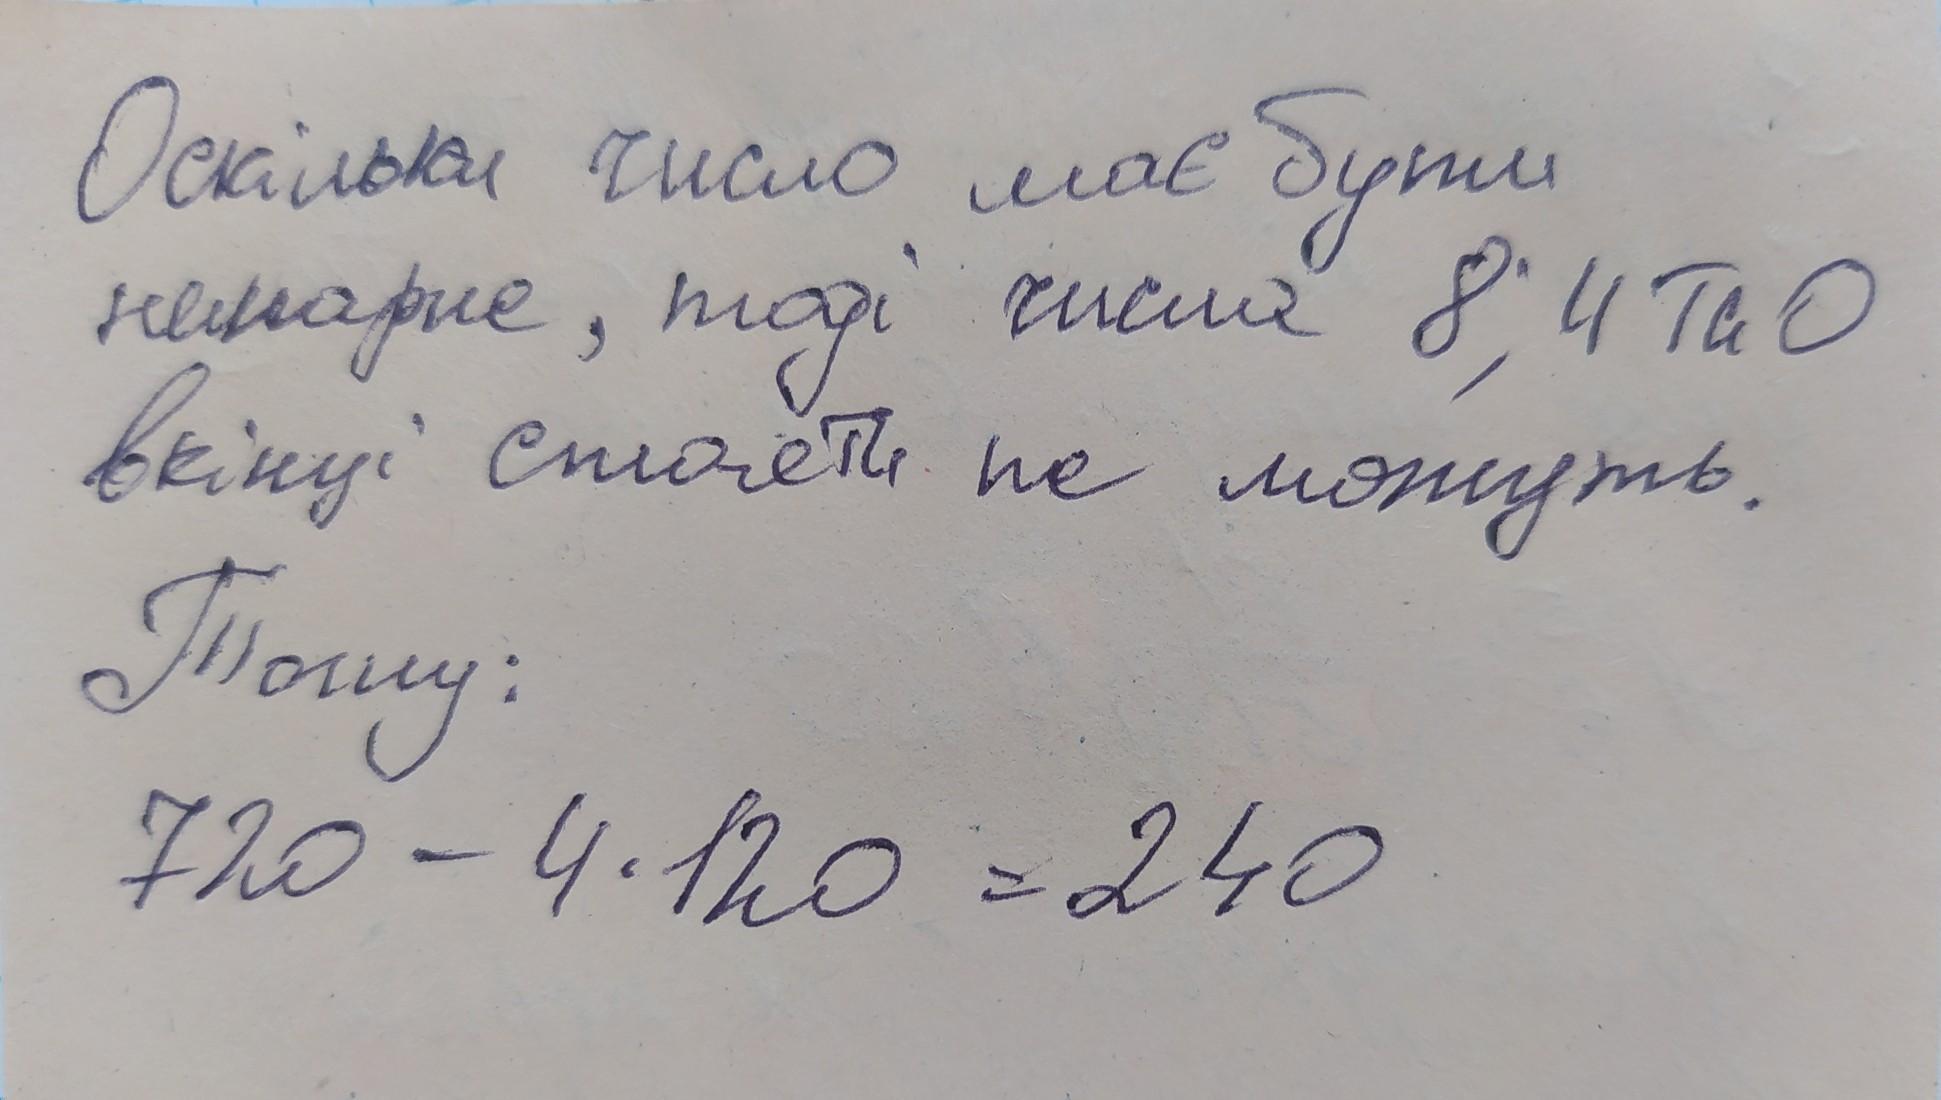 Оскільки число має бути
непарне, тоді числа 8; 4 та 0
вкінці стояти не можуть.
Тому:
720 - 4·120 = 240